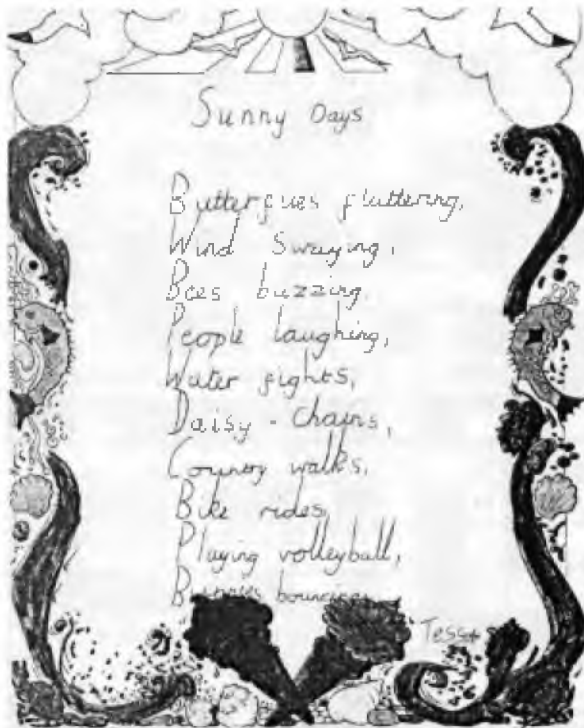 Sunny Days
Butterflies fluttering,
Wind Swaying,
Bees buzzing,
People laughing,
Water fights,
Daisy - Chains,
Country walks,
Bike rides,
Playing volleyball,
Bunnies bouncing,
Tess